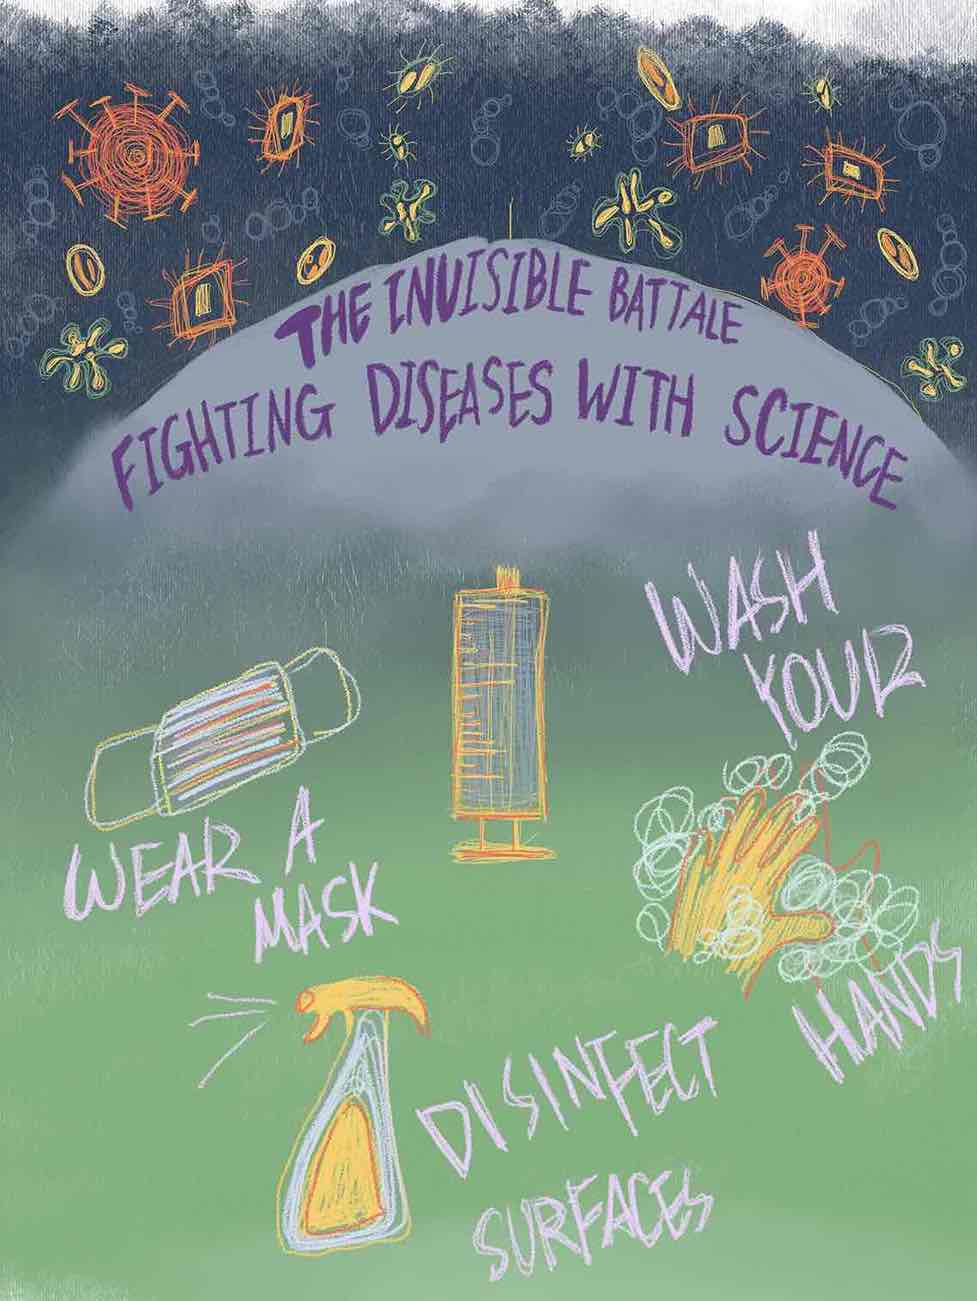 THE INVISIBLE BATTALE
FIGHTING DISEASES WITH SCIENCE
WASH
YOUR
HANDS
WEAR A
MASK
DISINFECT
SURFACES